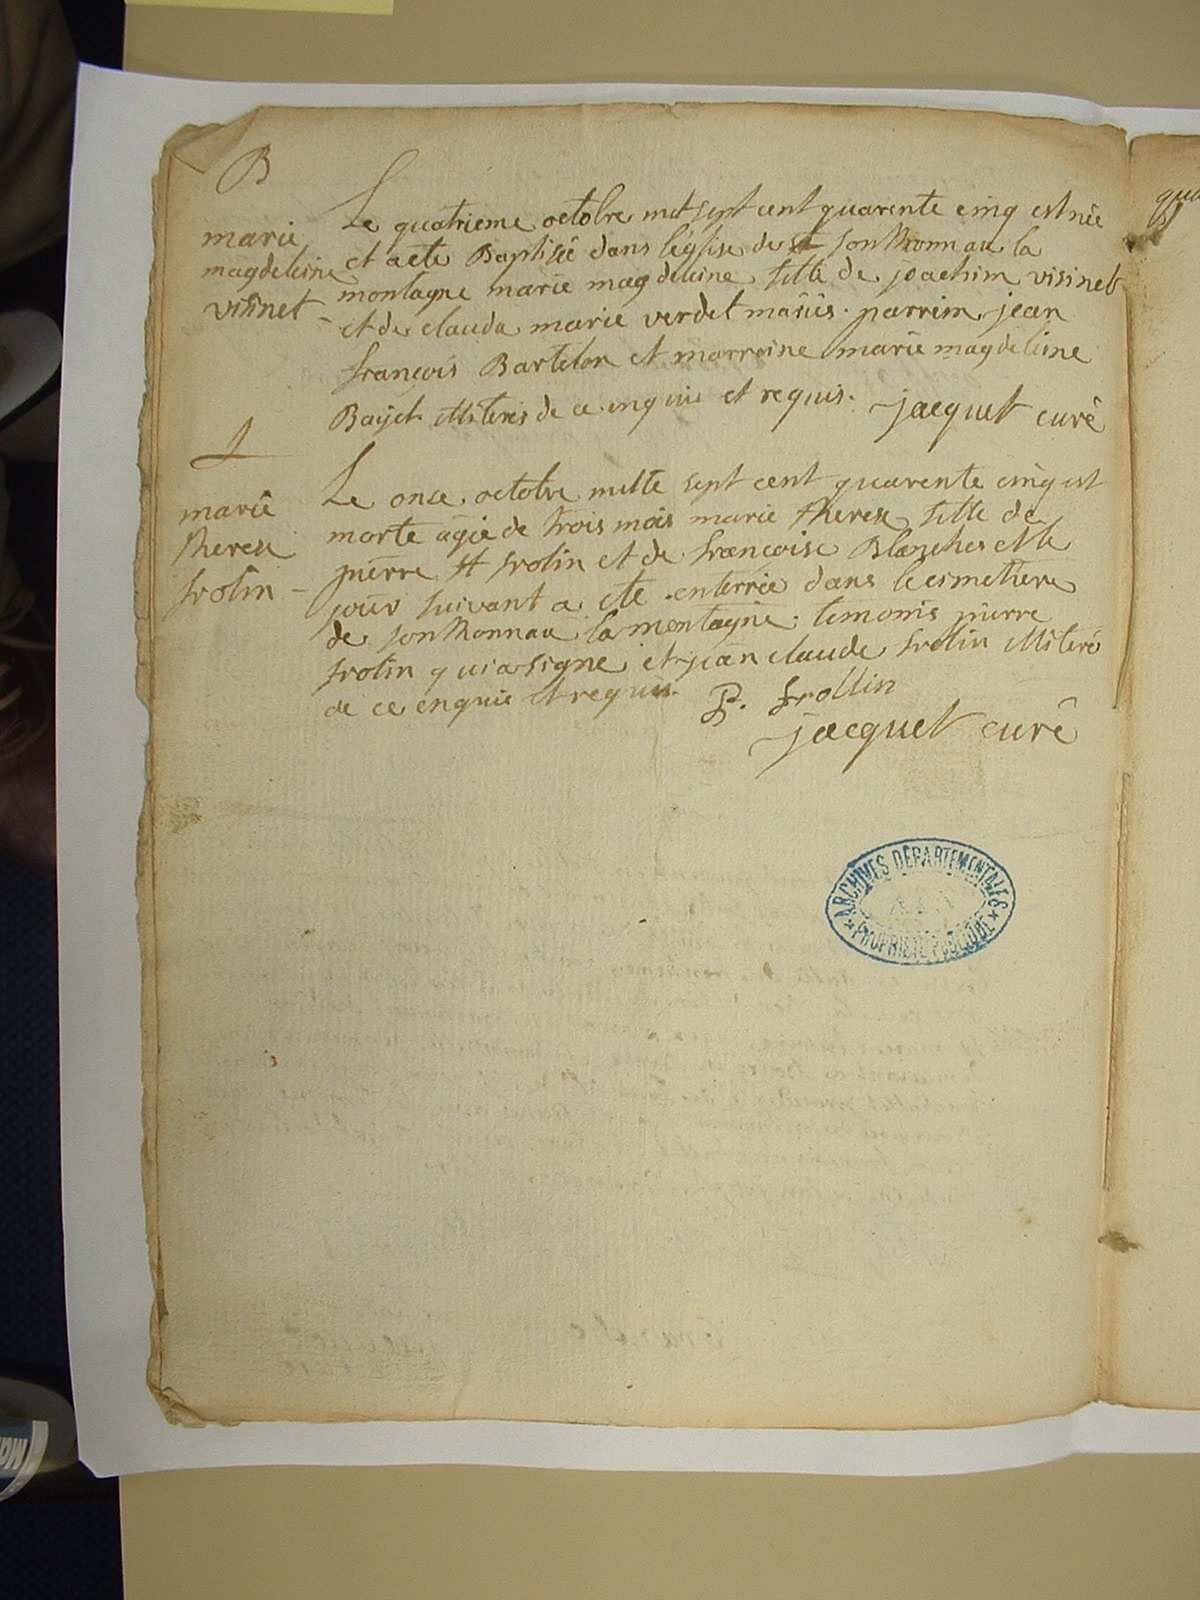 B
marie
magdeleine
visinet
Le quatrieme octobre mil sept cent quarente cinq est née
et a été Baptisée dans l'église de st jonthonnau la
montagne marie magdeleine fille de joachim visinet
et de clauda marie verdet mariés. parrein jean
françois Bartelon et marreine marie magdeleine
Bajet illiterés de ce enquis et requis. jacquet curé
marie
therese
frolin
Le onze octobre mille sept cent quarente cinq est
morte agée de trois mois marie therese fille de
pierre ff frolin et de françoise Blanches et le
jour suivant a été enterrée dans le cimetiere
de jonthonnau la montagne. temoins pierre
frolin qui a signé et jean claude frolin illiteré
de ce enquis et requis. P. frollin
jacquet curé
ARCHIVES DÉPARTEMENTALES
PROPRIÉTÉ PUBLIQUE